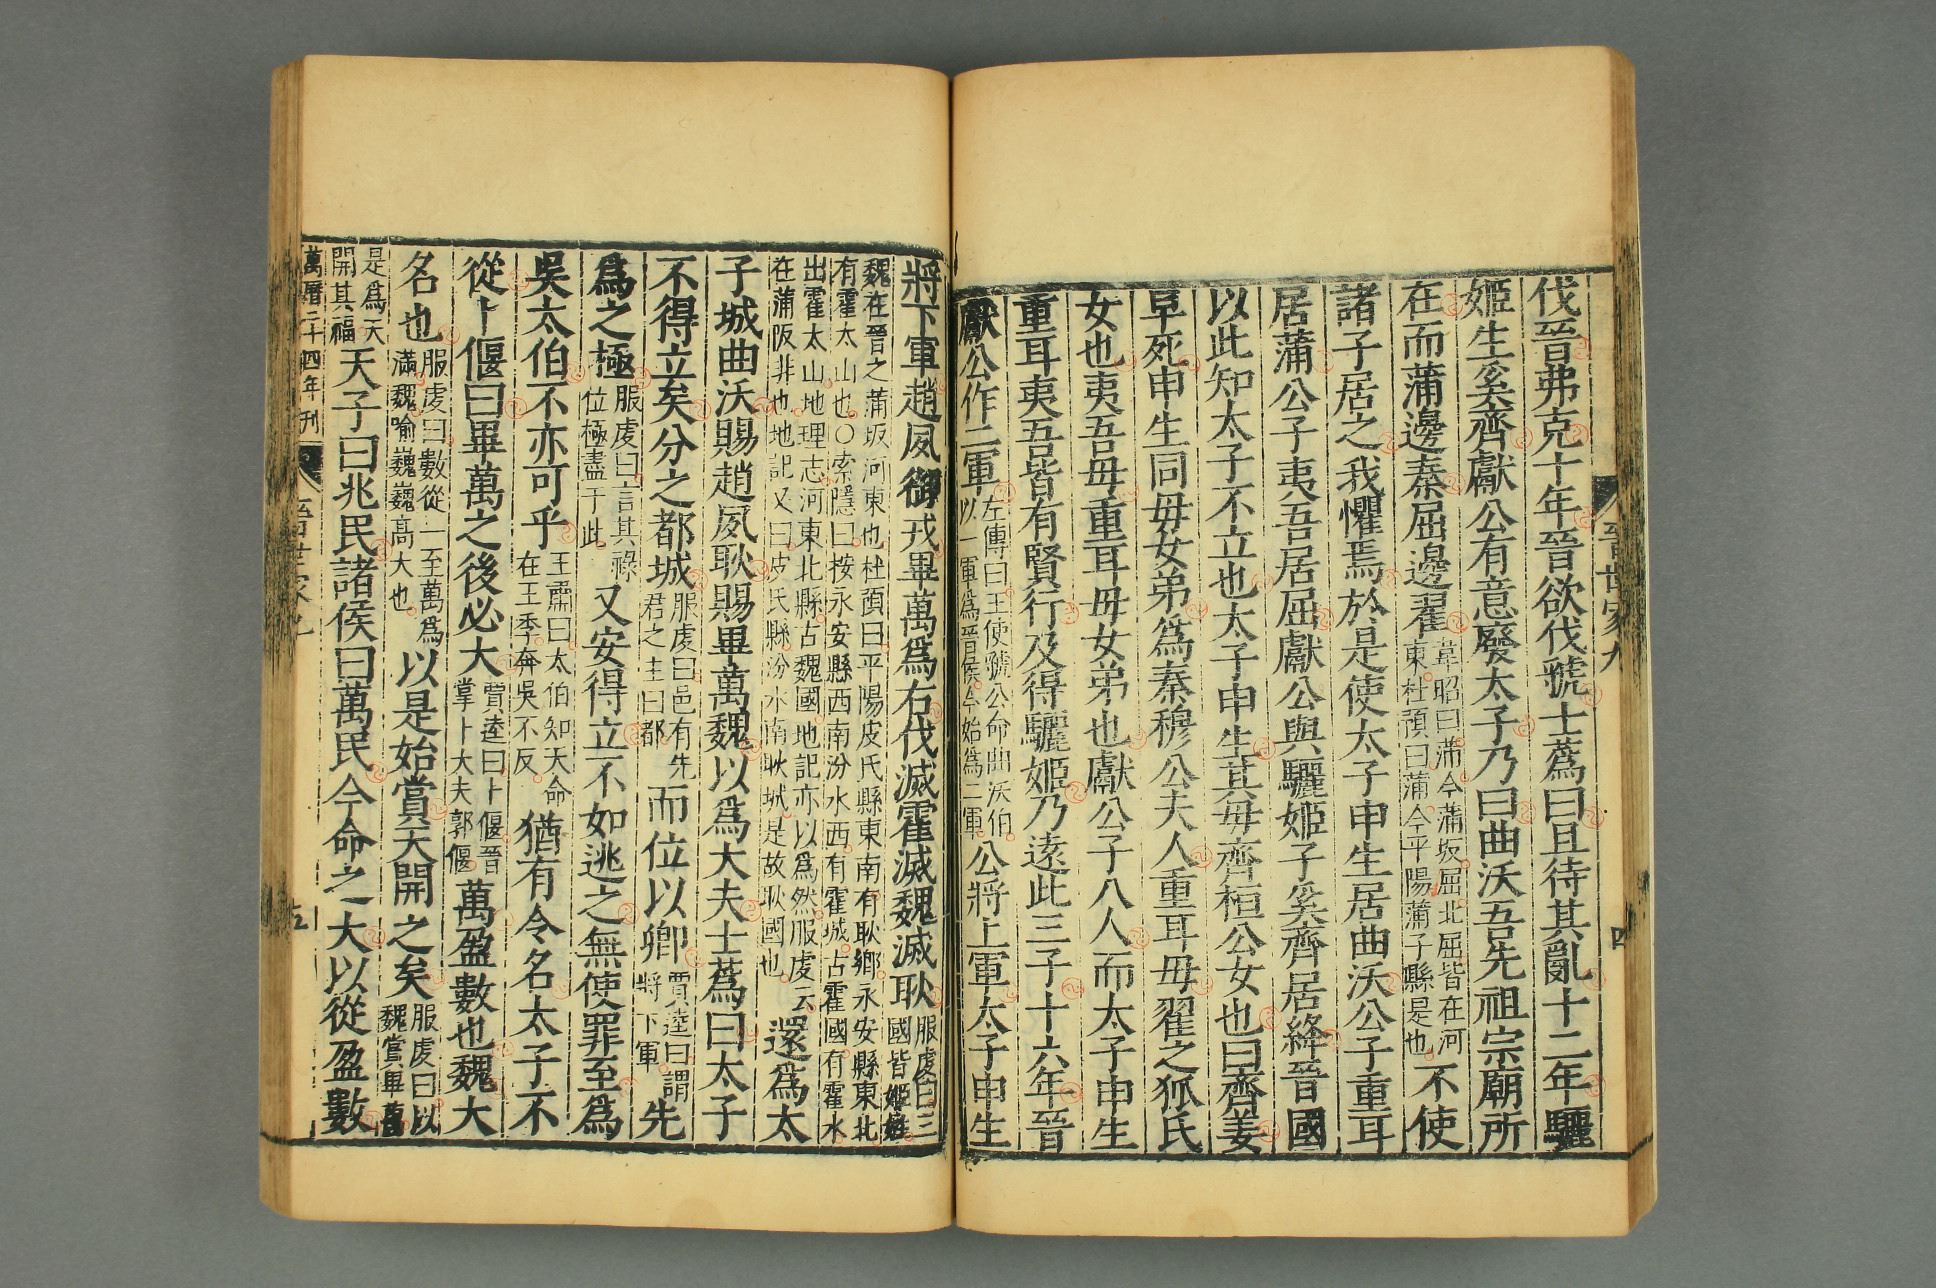 晉世家九
四
伐晉弗克十年晉欲伐虢士蔿曰且待其亂十二年驪
姬生奚齊獻公有意廢太子乃曰曲沃吾先祖宗廟所
在而蒲邊秦屈邊翟韋昭曰蒲今蒲坂屈北屈皆在河東杜預曰蒲今平陽蒲子縣是也不使
諸子居之我懼焉於是使太子申生居曲沃公子重耳
居蒲公子夷吾居屈獻公與驪姬子奚齊居絳晉國
以此知太子不立也太子申生其母齊桓公女也曰齊姜
早死申生同母女弟爲秦穆公夫人重耳母翟之狐氏
女也夷吾母重耳母女弟也獻公子八人而太子申生
重耳夷吾皆有賢行及得驪姬乃遠此三子十六年晉
獻公作二軍左傳曰王使虢公命曲沃伯以一軍爲晉侯今始爲二軍公將上軍太子申生
將下軍趙夙御戎畢萬爲右伐滅霍滅魏滅耿服虔曰三國皆姬姓
魏在晉之蒲坂河東也杜預曰平陽皮氏縣東南有耿鄉永安縣東北
有霍太山也○索隱曰按永安縣西南汾水西有霍城古霍國有霍水
出霍太山地理志河東北縣古魏國地記亦以爲然服虔云
在蒲阪非也地記又曰皮氏縣汾水南耿城是故耿國也還爲太
子城曲沃賜趙夙耿賜畢萬魏以爲大夫士蔿曰太子
不得立矣分之都城服虔曰邑有先君之主曰都而位以卿賈逵曰謂將下軍先
爲之極服虔曰言其祿位極盡于此又安得立不如逃之無使罪至爲
吳太伯不亦可乎王肅曰太伯知天命在王季奔吳不反猶有令名太子不
從卜偃曰畢萬之後必大賈逵曰卜偃晉掌卜大夫郭偃萬盈數也魏大
名也服虔曰數從一至萬爲滿魏喻巍巍高大也以是始賞天開之矣服虔曰以魏賞畢萬
是爲天開其福天子曰兆民諸侯曰萬民今命之大以從盈數
萬曆二十四年刊
晉世家九
五